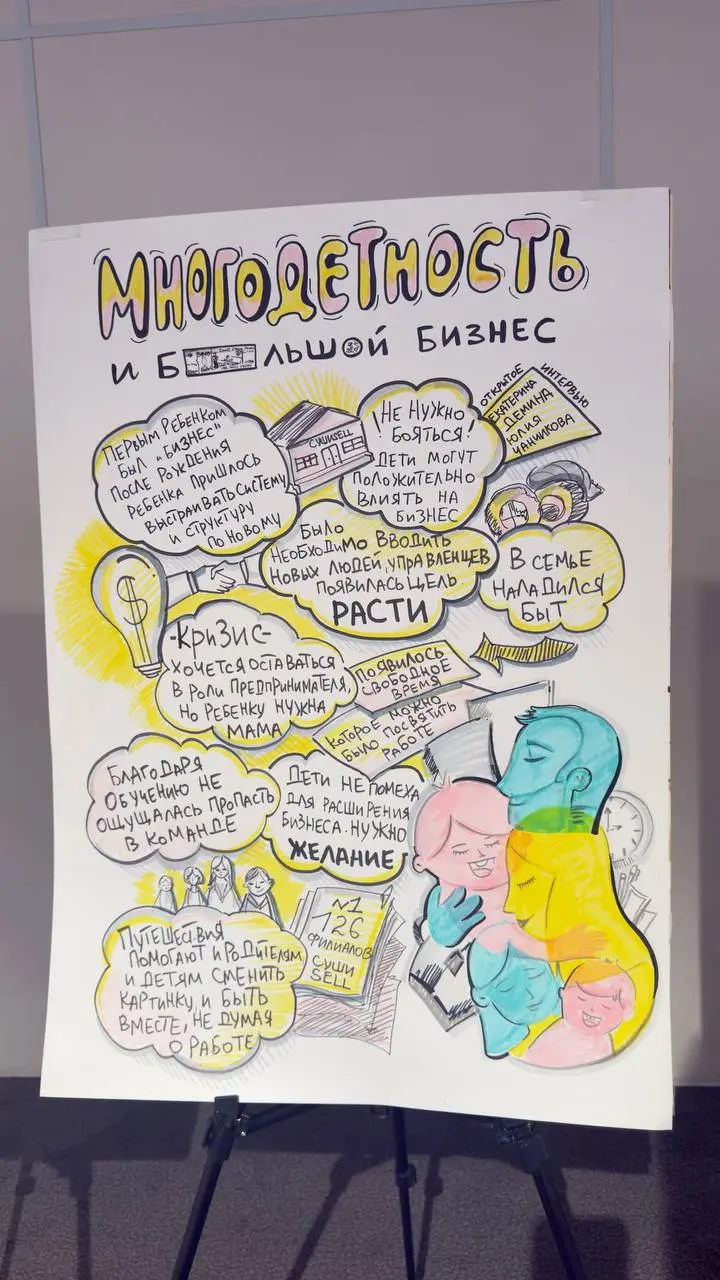 МНОГОДЕТНОСТЬ
И БОЛЬШОЙ БИЗНЕС
ОТКРЫТОЕ ИНТЕРВЬЮ
ЕКАТЕРИНА
ДЕМИНА
ЮЛИЯ
ЧАННИКОВА
ПЕРВЫМ РЕБЕНКОМ
БЫЛ „БИЗНЕС"
ПОСЛЕ РОЖДЕНИЯ
РЕБЕНКА ПРИШЛОСЬ
ВЫСТРАИВАТЬ СИСТЕМУ
И СТРУКТУРУ
ПО НОВОМУ
СУШИSELL
НЕ НУЖНО
БОЯТЬСЯ!
ДЕТИ МОГУТ
ПОЛОЖИТЕЛЬНО
ВЛИЯТЬ НА
БИЗНЕС
$
БЫЛО
НЕОБХОДИМО ВВОДИТЬ
НОВЫХ ЛЮДЕЙ, УПРАВЛЕНЦЕВ
ПОЯВИЛАСЬ ЦЕЛЬ
РАСТИ
В СЕМЬЕ
НАЛАДИЛСЯ
БЫТ
-КРИЗИС-
ХОЧЕТСЯ ОСТАВАТЬСЯ
В РОЛИ ПРЕДПРИНИМАТЕЛЯ,
НО РЕБЕНКУ НУЖНА
МАМА
ПОЯВИЛОСЬ
СВОБОДНОЕ
ВРЕМЯ
КОТОРОЕ МОЖНО
БЫЛО ПОСВЯТИТЬ
РАБОТЕ
БЛАГОДАРЯ
ОБУЧЕНИЮ НЕ
ОЩУЩАЛАСЬ ПРОПАСТЬ
В КОМАНДЕ
ДЕТИ НЕ ПОМЕХА
ДЛЯ РАСШИРЕНИЯ
БИЗНЕСА. НУЖНО
ЖЕЛАНИЕ
ПУТЕШЕСТВИЯ
ПОМОГАЮТ И РОДИТЕЛЯМ
И ДЕТЯМ СМЕНИТЬ
КАРТИНКУ, И БЫТЬ
ВМЕСТЕ, НЕ ДУМАЯ
О РАБОТЕ
№1
126
ФИЛИАЛОВ
СУШИ
SELL